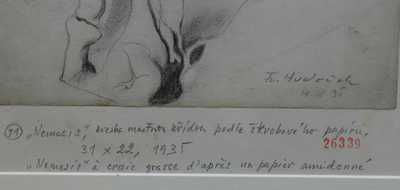 Fr. Hudeček
35
71 „Nemesis" kresba mastnou křídou podle škrobového papíru,
26339
31 x 22, 1935
„Nemesis" à craie grasse d'après un papier amidonné